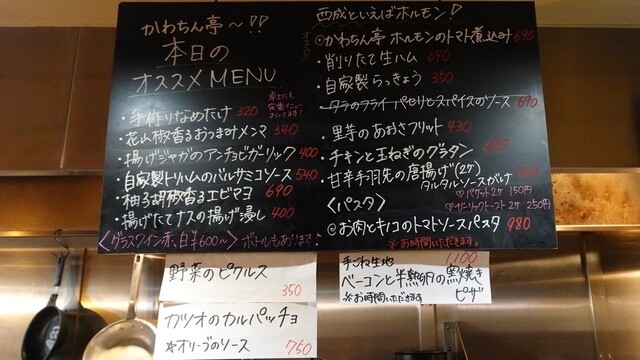 かわちん亭〜!!
本日の
オススメMENU
卓上にも
定番メニュー
あります!
・手作りなめたけ 320
・花山椒香るおつまみメンマ 340
・揚げジャガのアンチョビガーリック 400
・自家製トリハムのバルサミコソース 540
・柚子胡椒香るエビマヨ 690
・揚げたてナスの揚げ浸し 400
〈グラスワイン赤、白¥600〜〉ボトルもあります♪
西成といえばホルモン!
オススメ
◎かわちん亭 ホルモンのトマト煮込み 690
・削りたて生ハム 690
・自家製らっきょう 350
・タラのフライ パセリとスパイスのソース 690
・里芋のあおさフリット 430
・チキンと玉ねぎのグラタン
・甘辛手羽先の唐揚げ(2ケ)
タルタルソースがけ
♡バケット2ケ 150円
♡ガーリックトースト2ケ 250円
〈パスタ〉
◎お肉とキノコのトマトソースパスタ 980
※お時間いただきます。
野菜のピクルス
350
カツオのカルパッチョ
※オリーブのソース 750
手ごね生地 1100
ベーコンと半熟卵の窯焼き
※お時間いただきます ピザ